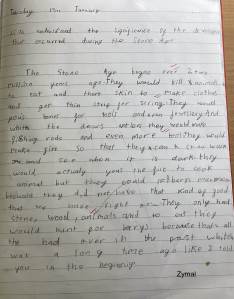 Tuesday 13th January
to understand the significance of the
that occurred during the Stone Age
The Stone Age began over 2
million years ago. They would kill animals
to eat and there skin to make clothes
and get thin string for string. They would
use bones for tools and even jewellery. And
with the they would make
fishing rods and even more tools. They would
make fire so that they can
and see when it is dark they
would actually use the fire to cook
animal but they would eat berries
because they did not have that kind of good
that we have right now. They only had
stone, wood, animals and to eat they
would hunt for berrys because thats all
the had over in the past which
was a long time ago like I told
you in the beginning.
Zymal